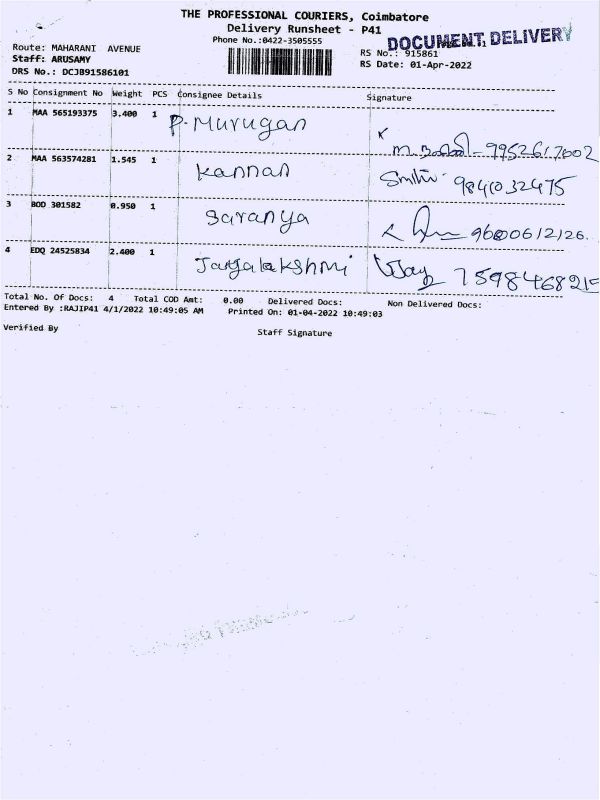 THE PROFESSIONAL COURIERS, Coimbatore
Delivery Runsheet - P41
Phone No.:0422-3505555
DOCUMENT DELIVERY
Route: MAHARANI AVENUE
RS No.: 915861
Staff: ARUSAMY
RS Date: 01-Apr-2022
DRS No.: DCJB91586101
S No Consignment No Weight PCS Consignee Details Signature
1 MAA 565193375 3.400 1 P. Murugan
2 MAA 563574281 1.545 1 Kannan 9841032475
3 BOD 301582 0.950 1 Saranya
4 EDQ 24525834 2.400 1 7598468215
Total No. Of Docs: 4 Total COD Amt: 0.00 Delivered Docs: Non Delivered Docs:
Entered By :RAJIP41 4/1/2022 10:49:05 AM Printed On: 01-04-2022 10:49:03
Verified By Staff Signature